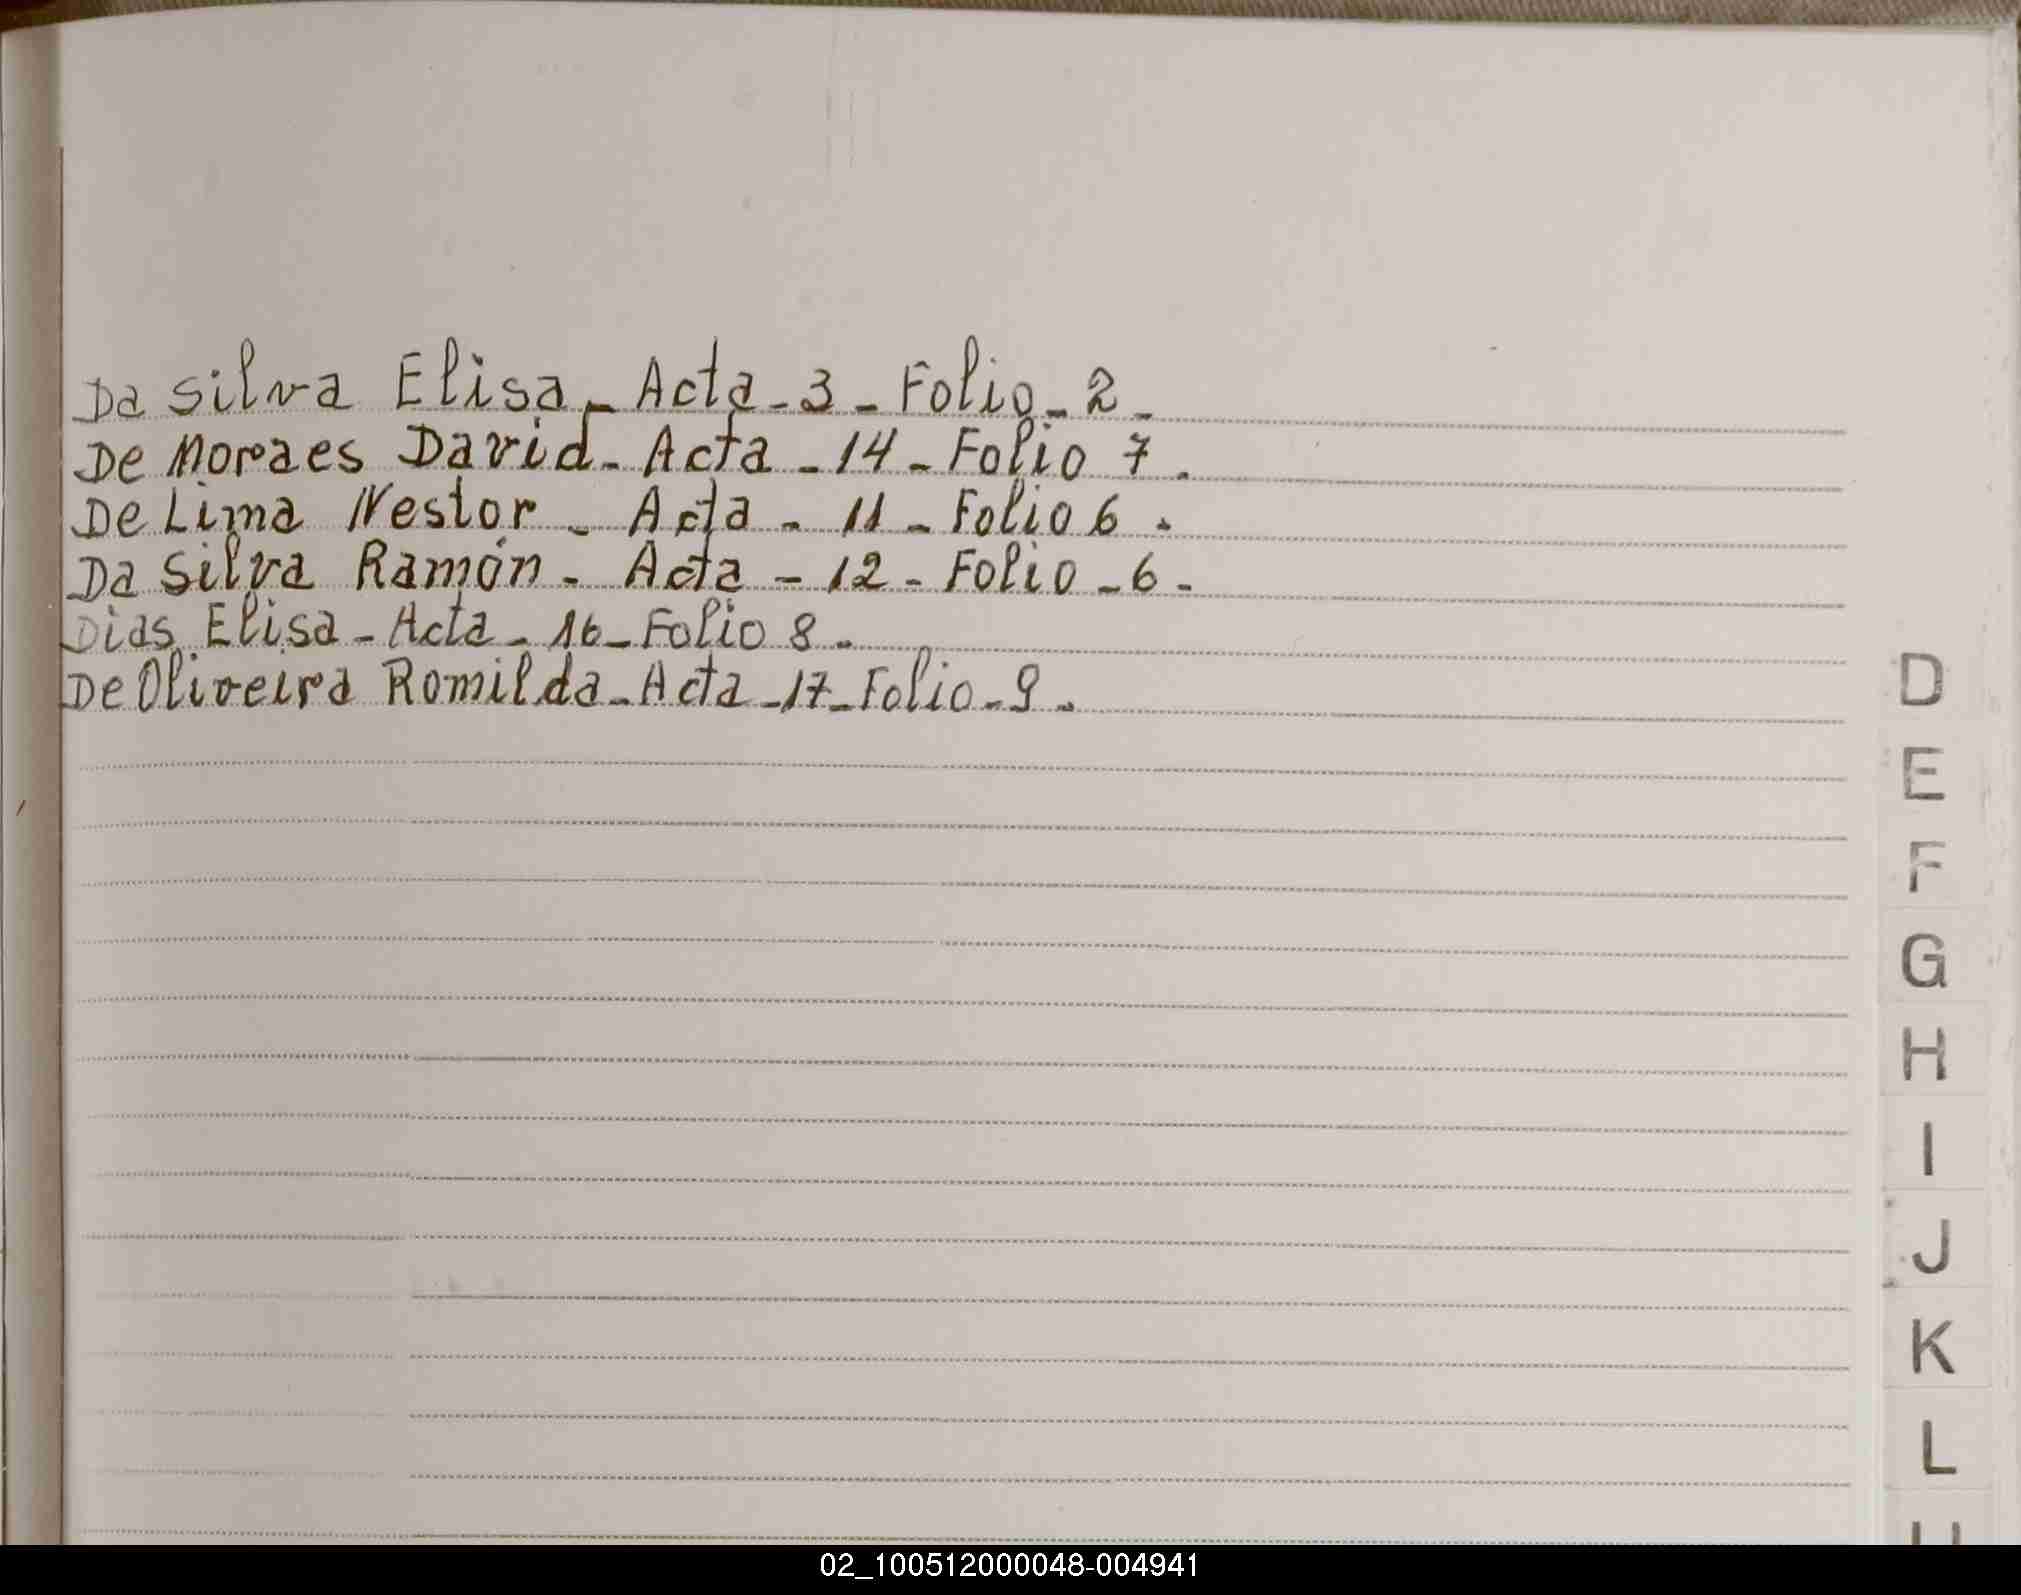 Da Silva Elisa - Acta - 3 - Folio - 2 -
De Moraes David - Acta - 14 - Folio 7 -
De Lima Nestor - Acta - 11 - Folio 6 -
Da Silva Ramón - Acta - 12 - Folio - 6 -
Dias Elisa - Acta - 16 - Folio 8 -
De Oliveira Romilda - Acta - 17 - Folio - 9 -
D
E
F
G
H
I
J
K
L
02_100512000048-004941